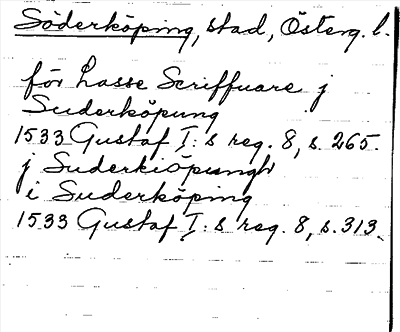 Söderköping, stad, Österg. l.
för Lasse Scriffuare j
Suderköpung
1533 Gustaf I:s reg. 8, s. 265.
j Suderkiöpungh
i Suderköping
1533 Gustaf I:s reg. 8, s. 313.